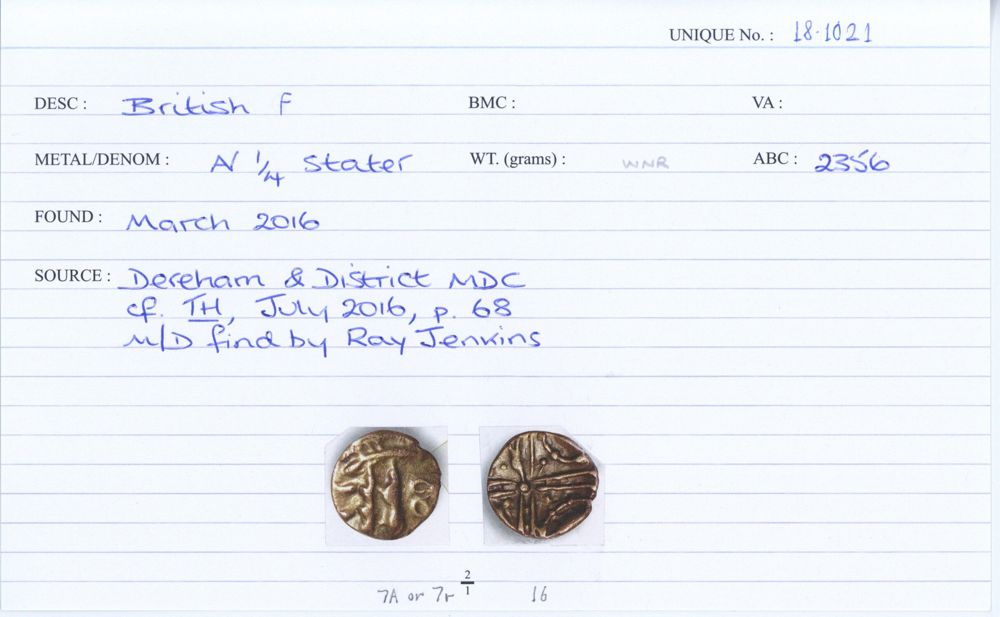 UNIQUE No. : 18.1021
DESC : British F BMC : VA :
METAL/DENOM : N 1/4 Stater WT. (grams) : WNR ABC : 2356
FOUND : March 2016
SOURCE : Dereham & District MDC
cf. TH, July 2016, p. 68
M/D find by Ray Jenkins
7A or 7r 2/1 16